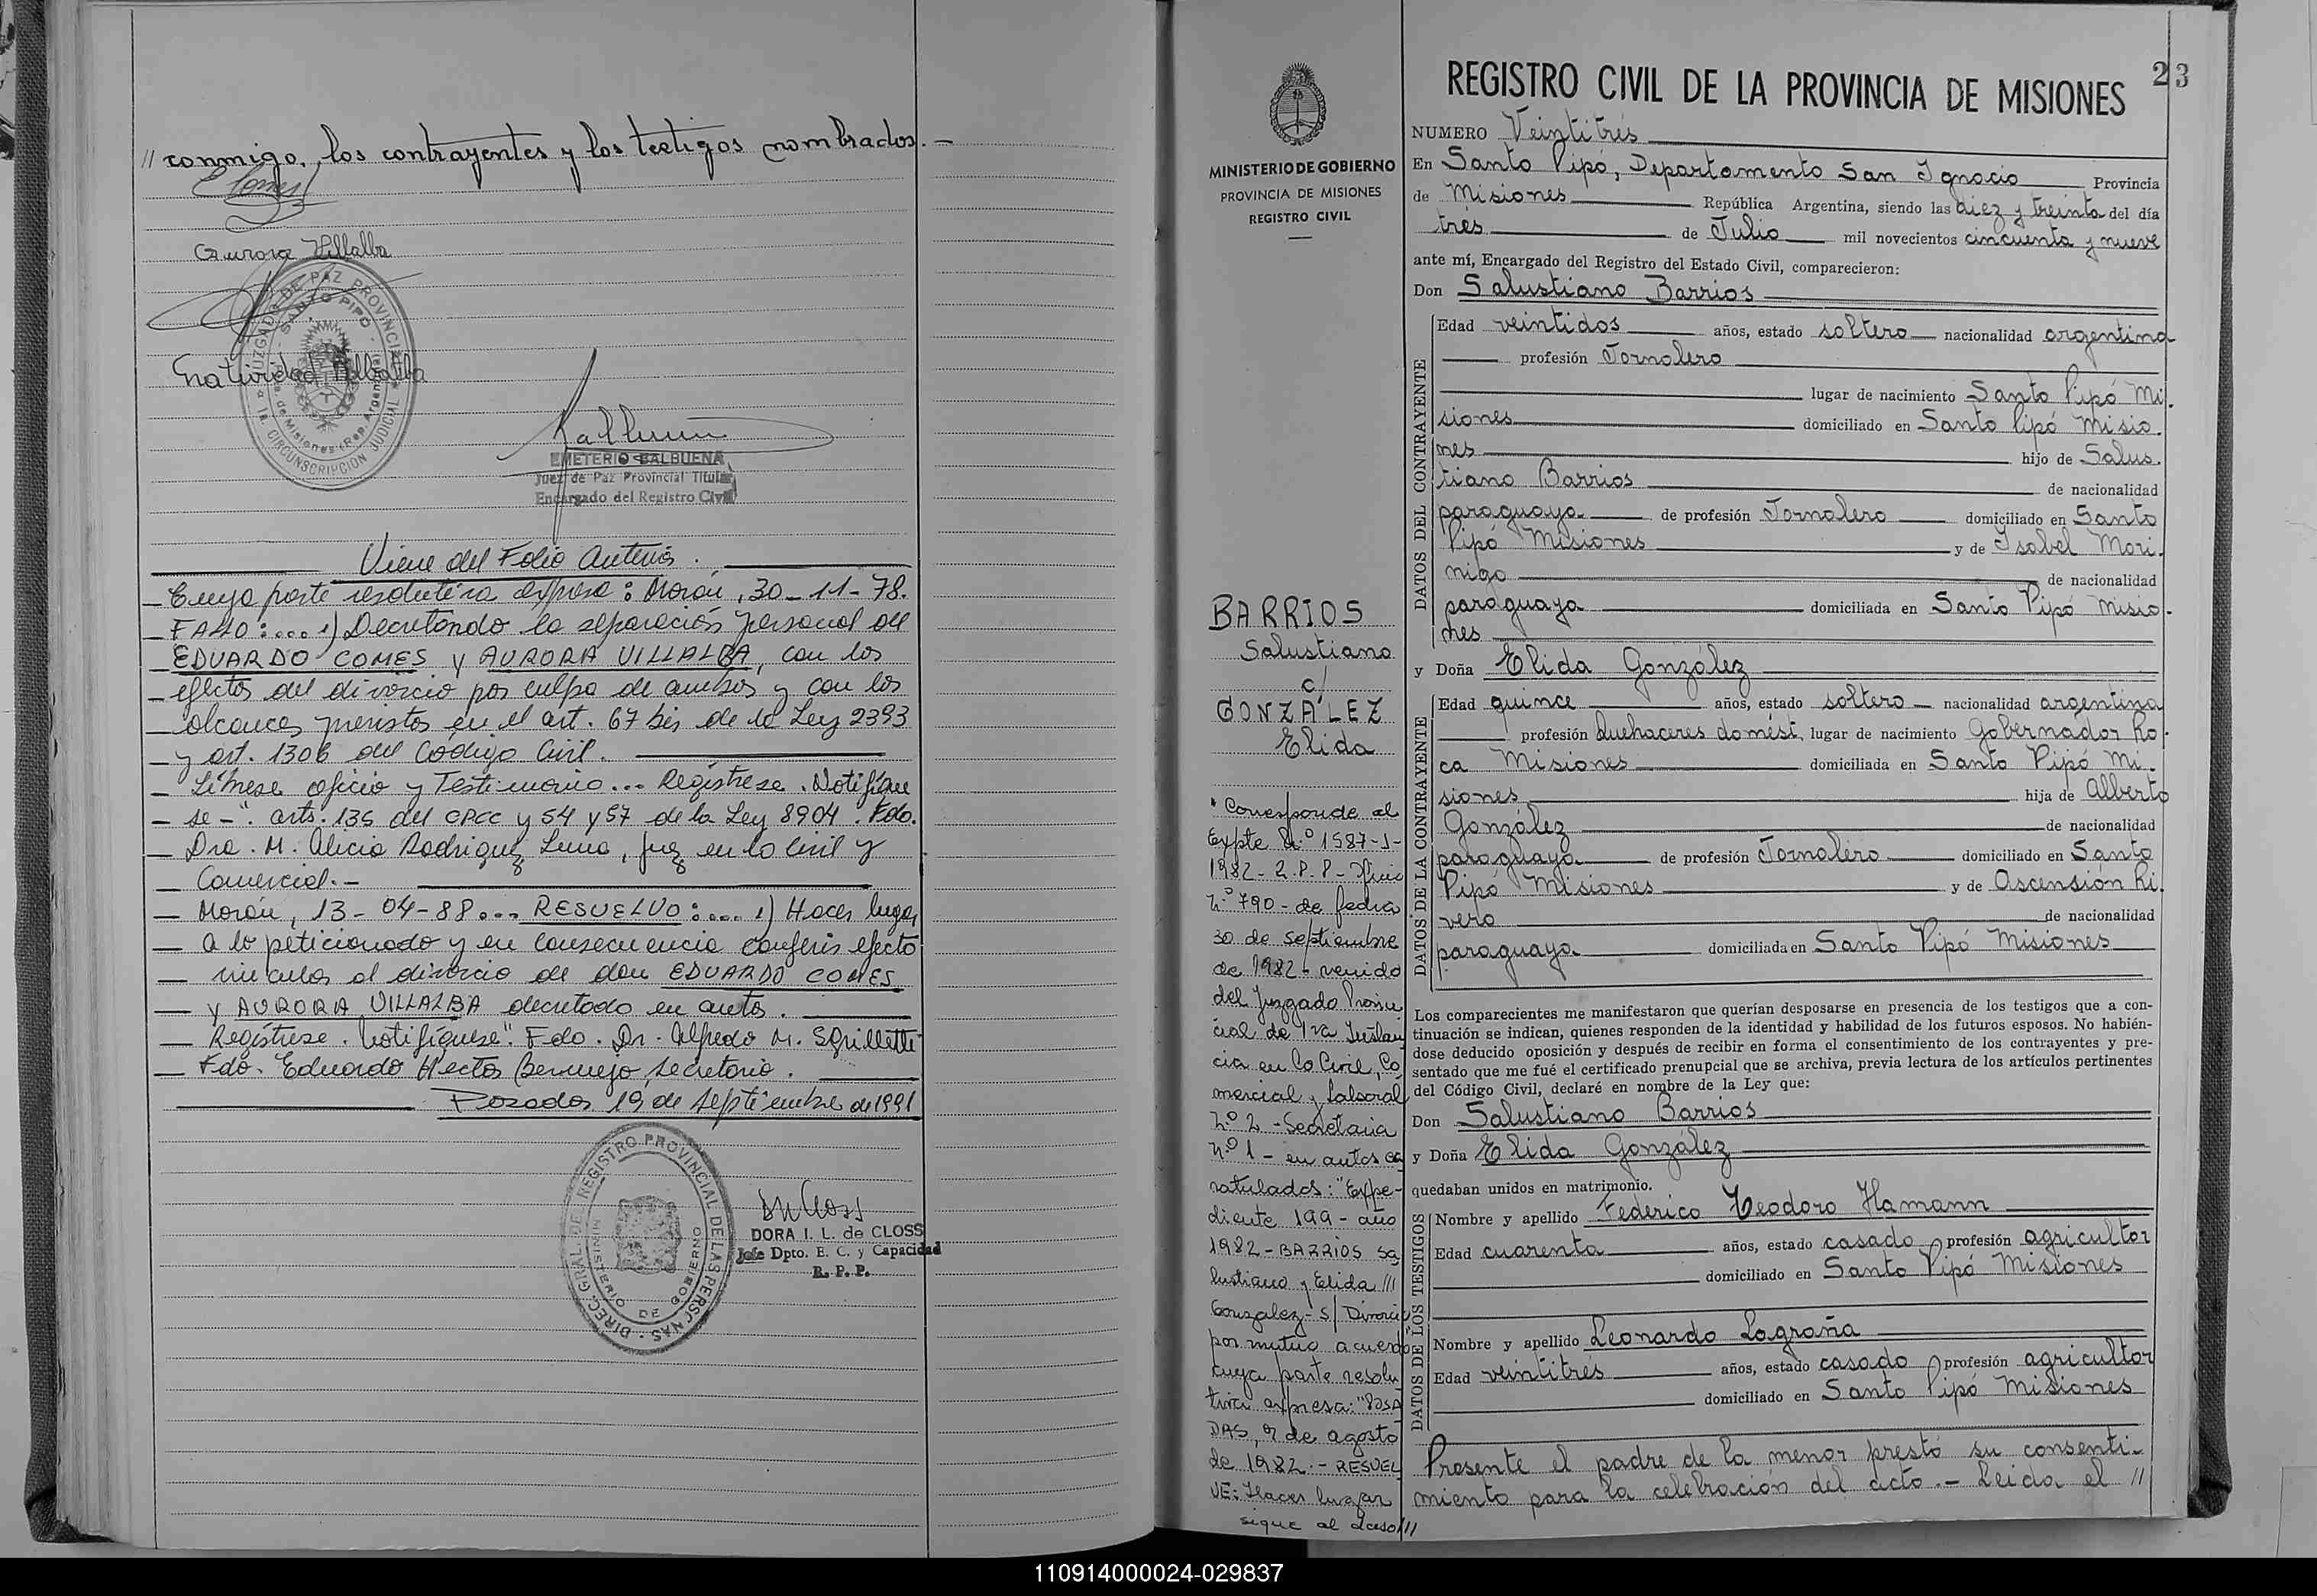 // conmigo, los contrayentes y los testigos nombrados.-
Aurora Villalba
JUZGADO DE PAZ PROVINCIAL
SANTO PIPO
1a. CIRCUNSCRIPCION JUDICIAL
Natividad Villalba
EMETERIO BALBUENA
Juez de Paz Provincial Titular
Encargado del Registro Civil
Viene del Folio Anterior.
- Cuya parte resolutiva expresa: Morón, 30-11-78.
- FALLO:... 1) Decretando la separación personal de
- EDUARDO COMES y AURORA VILLALBA, con los
- efectos del divorcio por culpa de ambos y con los
- alcances previstos en el art. 67 bis de la Ley 2393
- y art. 1306 del Código Civil.
- Líbrese oficio y Testimonio... Regístrese. Notifíque
- se-". arts. 135 del CPCC y 54 y 57 de la Ley 8904. Fdo.
- Dra. M. Alicia Rodriguez Luna, Juez en lo Civil y
- Comercial.-
- Morón, 13-04-88... RESUELVO:.... 1) Hacer lugar
- a lo peticionado y en consecuencia conferir efecto
- vincular al divorcio de don EDUARDO COMES
- y AURORA VILLALBA decretado en autos.
- Regístrese. Notifíquese". Fdo. Dr. Alfredo M. Sgrilletti
- Fdo. Eduardo Hector Bermejo, Secretario.
Posadas, 19 de septiembre de 1991
DIREC. GRAL. DE REGISTRO PROVINCIAL DE LAS PERSONAS
MINISTERIO DE GOBIERNO
DORA I. L. de CLOSS
Jefe Dpto. E. C. y Capacidad
R. P. P.
23
REGISTRO CIVIL DE LA PROVINCIA DE MISIONES
MINISTERIO DE GOBIERNO
PROVINCIA DE MISIONES
REGISTRO CIVIL
BARRIOS
Salustiano
c/
GONZÁLEZ
Elida
"Corresponde al
Expte N.º 1587-J-
1982- R.P.P- Oficio
N.º 790- de fecha
30 de septiembre
de 1982- venido
del Juzgado Provin
cial de 1ra Instan
cia en lo Civil, Co
mercial y Laboral
N.º 2 -Secretaria
N.º 1 - en autos ca
ratulados: "Expe-
diente 199- año
1982-BARRIOS Sa
lustiano y Elida ///
Gonzalez- S/ Divorcio
por mutuo acuerdo"
cuya parte resolu
tiva expresa: "POSA
DAS, 9 de agosto
de 1982.- RESUEL
VE: Hacer lugar
sigue al dorso///
NUMERO Veintitrés
En Santo Pipó, Departamento San Ignacio Provincia
de Misiones República Argentina, siendo las diez y treinta del día
tres de Julio mil novecientos cincuenta y nueve
ante mí, Encargado del Registro del Estado Civil, comparecieron:
Don Salustiano Barrios
DATOS DEL CONTRAYENTE
Edad veintidos años, estado soltero nacionalidad argentina
profesión Jornalero
lugar de nacimiento Santo Pipó Mi-
siones domiciliado en Santo Pipó Misio-
nes hijo de Salus-
tiano Barrios de nacionalidad
paraguaya de profesión Jornalero domiciliado en Santo
Pipó Misiones y de Isabel Mori-
nigo de nacionalidad
paraguaya domiciliada en Santo Pipó Misio-
nes
y Doña Elida González
DATOS DE LA CONTRAYENTE
Edad quince años, estado soltero nacionalidad argentina
profesión Quehaceres domést. lugar de nacimiento Gobernador Ro-
ca Misiones domiciliada en Santo Pipó Mi-
siones hija de Alberto
González de nacionalidad
paraguaya de profesión Jornalero domiciliado en Santo
Pipó Misiones y de Ascensión Ri-
vero de nacionalidad
paraguaya domiciliada en Santo Pipó Misiones
Los comparecientes me manifestaron que querían desposarse en presencia de los testigos que a con-
tinuación se indican, quienes responden de la identidad y habilidad de los futuros esposos. No habién-
dose deducido oposición y después de recibir en forma el consentimiento de los contrayentes y pre-
sentado que me fué el certificado prenupcial que se archiva, previa lectura de los artículos pertinentes
del Código Civil, declaré en nombre de la Ley que:
Don Salustiano Barrios
y Doña Elida González
quedaban unidos en matrimonio.
DATOS DE LOS TESTIGOS
Nombre y apellido Federico Teodoro Hamann
Edad cuarenta años, estado casado profesión agricultor
domiciliado en Santo Pipó Misiones
Nombre y apellido Leonardo Lograña
Edad veintitrés años, estado casado profesión agricultor
domiciliado en Santo Pipó Misiones
Presente el padre de la menor prestó su consenti-
miento para la celebración del acto.- Leida el //
110914000024-029837